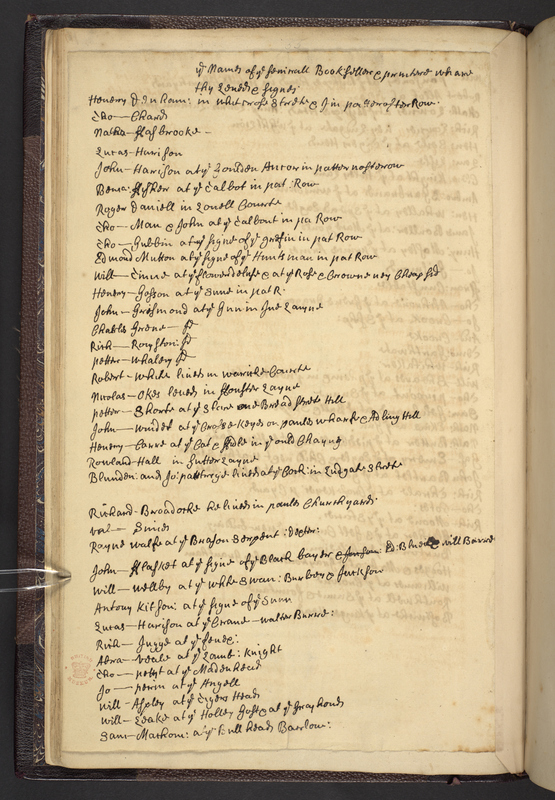 ye Names of ye seuirall Booksellers & printers wh are
thy Leueds & signes
Henery Denham: in whitcrose strete & J in paternosterRow.
Tho— Chard
Natha— ffosbrooke —
Lucas— Harison
John— Harison at ye Goulden Ancor in patternosterow
Benia: ffisher at ye Talbot in pat: Row
Roger Daniell in Louell Courte
Tho— Man & John at ye Talbout in pa Row
Tho— Gubbin at ye signe of ye grefin in pat Row
Edmond Mutton at ye signe of ye Huntsman in pat Row
Will— at ye flowerdeluse & at ye Rose & Crowne ney Cheapsid
Henery— Gosson at ye Sune in pat R:
John— Grismond at ye Gunn in Iue Layne
Charles Grene—
Rich— Royston:
petter— Whaley
Robert— White liues in warwicke Courte
Nicolas— Okes leueds in ffouster Layne
petter— Shorte at ye Stare one Bread strete Hill
John— Windet at ye Crosse Keyes on paules wharfe & Adling Hill
Henery— Carre at ye Cat & ffidle in ye ould Chayng
Rowland Hall in Gutter Layne
Blunden: and Jo: partreye liueds at ye Cock: in Ludgate Strete
Richard— Broadocke he liueds in paules Churchyard:
val— Simes
Rayne walfe at ye Brason Serpent:
John— fflasket at ye signe of ye Black bayer Ed: Blunt & will Barret
Will— Welby at ye White Swan: Burbey & Jackson
Antony Kitson: at ye signe of ye Sunn
Lucas— Harison at ye Crane— walter Burre:
Rich— Jugge at ye
Abra— Veale at ye Lamb: Knight
Tho— petyt at ye Madenhead
Jo— perin at ye Angell
Will— Aspley at ye Tigers Head
Will— Leake at ye Holley Gost & at ye Grayhound
Sam— Macham: at ye Bull head: Barlow: